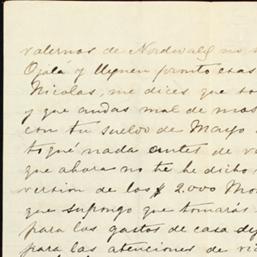 valernos de no
Ojalá y lleguen pronto esas
Nicolas, me dices que to
y que andas mal de mos
con tu sueldo de Mayo
toqué nada antes de v
que ahora no te he dicho
version de los $ 2.000 Mo
que supongo que tomarás
para los gastos de casa de
para las atenciones de vi